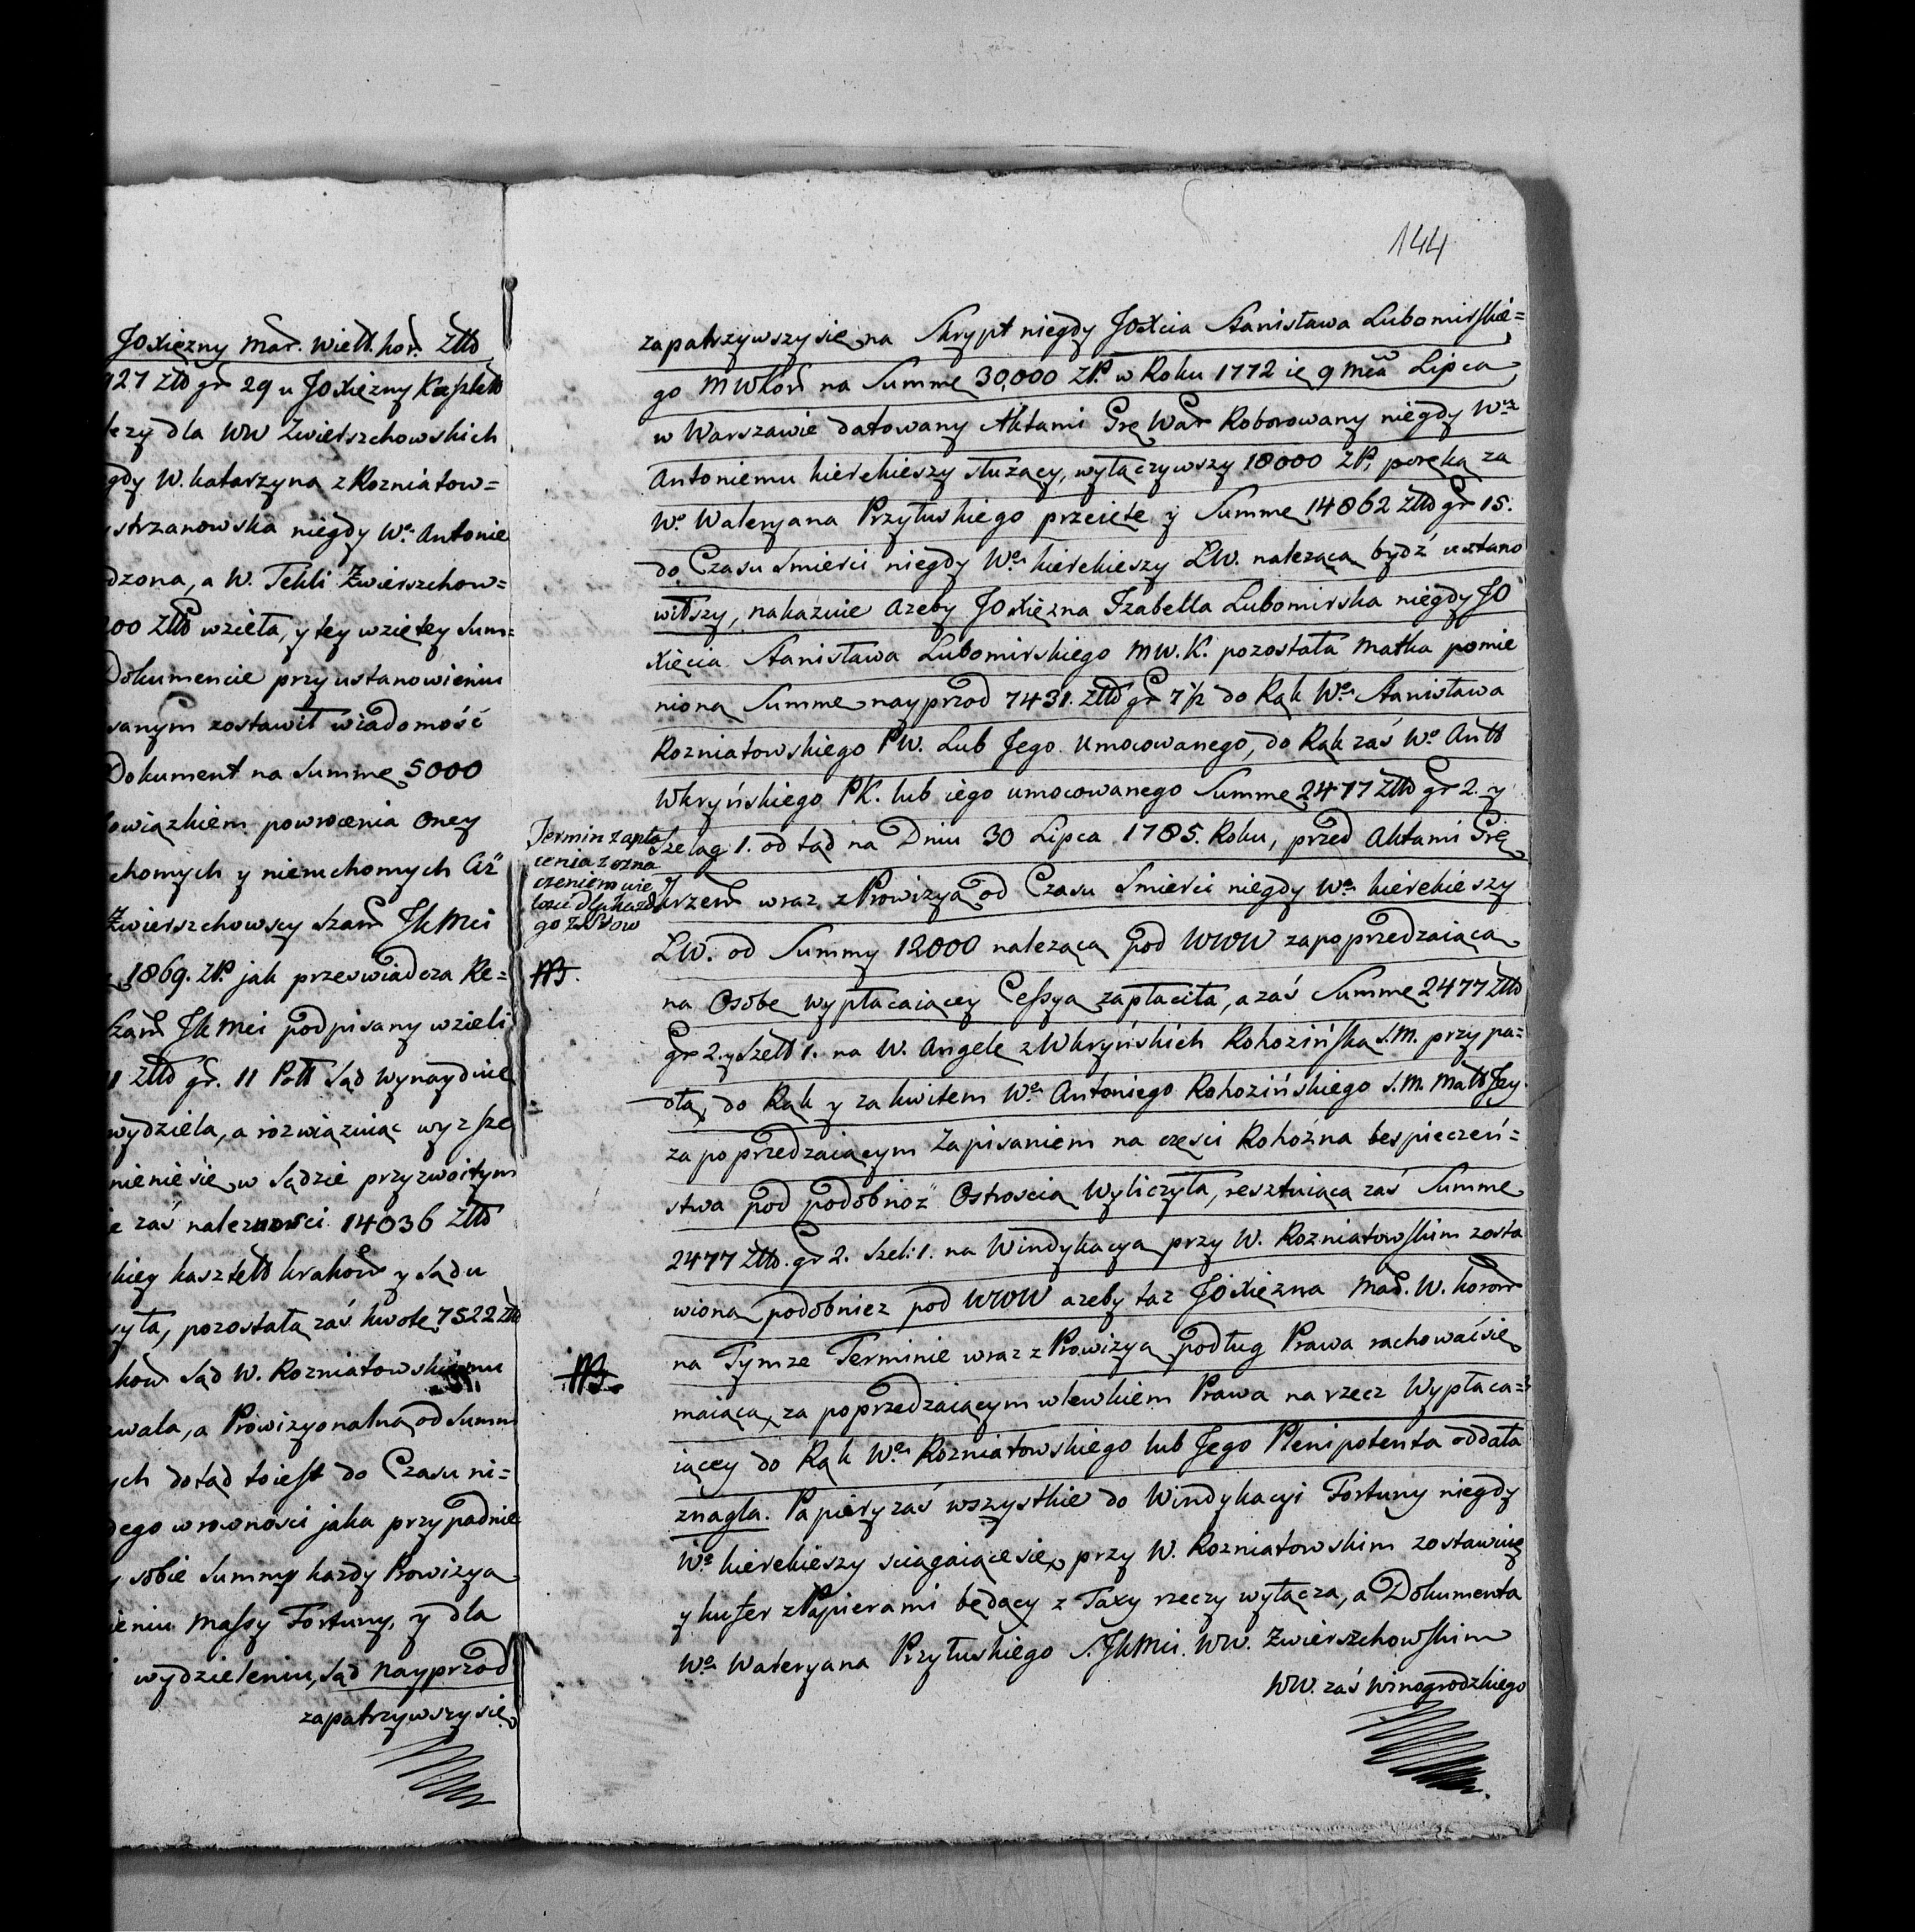 144
JOXiężny Mar. Wielk. kor. Złłd
927 Złłd gr 29 u JOXiężny Kasztell
leży dla WW Zwierszchowskich
gdy W. Katarzyna z Rozniatow=
strzanowska niegdy Wº Antonie
dzona, a W. Tekli Zwierszchow=
200 Złłd wzieta, y tey wziętey Sum=
Dokumencie przy ustanowieniu
sanym zostawił wiadomość
Dokument na Summę 5000
owiązkiem powrocenia Oney
chomych y nieruchomych
Zwierszchowscy Szam JKMci
1869. ZłP. jak przeswiadcza Re=
Szam JKMci podpisany wzieli
11 Złłd gr. 11 Sąd Wynayduie
wydziela, a rozwiązuiąc wyzsze
nienie się w Sądzie przyzwoitym
e zaś nalezności 14036 Złłd
kiey kasztell krakow y Sądu
yła, pozostałą zaś kwotę 7522 Złł
kow Sąd W. Rozniatowskiemu
wala, a Prowizyonalną od Summ
ych dotąd toiest do Czasu ni=
dego w rowności jaka przypadnie
y sobie Summy kazdy Prowizyą
ieniu Massy Fortuny, y dla
i wydzieleniu, Sąd Nayprzod
zapatrzywszy się
zapatrzywszy się na Skrypt niegdy JOXcia Stanisława Lubomirskie=
go MWKor na Summę 30,000 ZłP. w Roku 1772 ię 9 Mca Lipca
w Warszawie datowany Aktami Gre War Roborowany niegdy Wu
Antoniemu kierekieszy służący, wyłączywszy 18000 ZłP, poręką za
Wº Waleryana Przyłuskiego przeięte y Summę 14862 Złłd gr 15.
do Czasu Smierci niegdy Wº kierekieszy ŁW. nalezącą bydź ustano
wiłszy, nakazuie azeby JOXiężna Izabella Lubomirska niegdy JO
Xięcia Stanisława Lubomirskiego MW.K. pozostała Małka pomie
nioną Summę nayprzod 7431. Złłd gr 7 1/2 do Rąk Wº Stanisława
Rozniatowskiego PW. Lub Jego Umocowanego, do Rąk zaś Wº Antt
Wkryńskiego PK. lub iego umocowanego Summę 2477 Złłd gr 2. y
Termin zapła
cenia z ozna
czeniem wie
losci dla kazde
go z WWow
Szeląg 1. od tąd na Dniu 30 Lipca 1785. Roku, przed Aktami Gre
Krzem wraz z Prowizyą od Czasu Smierci niegdy Wº kierekieszy
ŁW. od Summy 12000 nalezącą pod WWW za poprzedzaiącą
NB.
na Osobę wypłacaiącey Cessyą zapłaciła, a zaś Summę 2477 Złłd
gr 2. y Szell 1. na W. Angelę z Wkryńskich Rohozińską S.M. przypa=
dłą, do Rąk y za kwitem Wº Antoniego Rohozińskiego S.M. Małł Jey
za poprzedzaiącym Zapisaniem na części Rohożna bespieczeń=
stwa pod podobnoż Ostrością Wyliczyła, resztuiącą zaś Summę
2477 Złłd. gr 2. Szel: 1. na Windykacyą przy W. Rozniatowskim zosta
wioną podobniez pod WWW azeby taz JOXiężna Mar. W. koron
na Tymze Terminie wraz z Prowizyą podług Prawa rachować się
NB.
maiącą, za poprzedzaiącym wlewkiem Prawa na rzecz Wypłaca=
iącey do Rąk Wº Rozniatowskiego lub Jego Plenipotenta oddała
znagla. Papiery zaś wszystkie do Windykacyi Fortuny niegdy
Wº kierekieszy sciągaiące się, przy W. Rozniatowskim zostawuię
y kufer z Papierami będący z Taxy rzeczy wyłącza, a Dokumenta
Wº Waleryana Przyłuskiego S.JKMci. WW. Zwierszchowskim
WW. zaś Winogrodzkiego